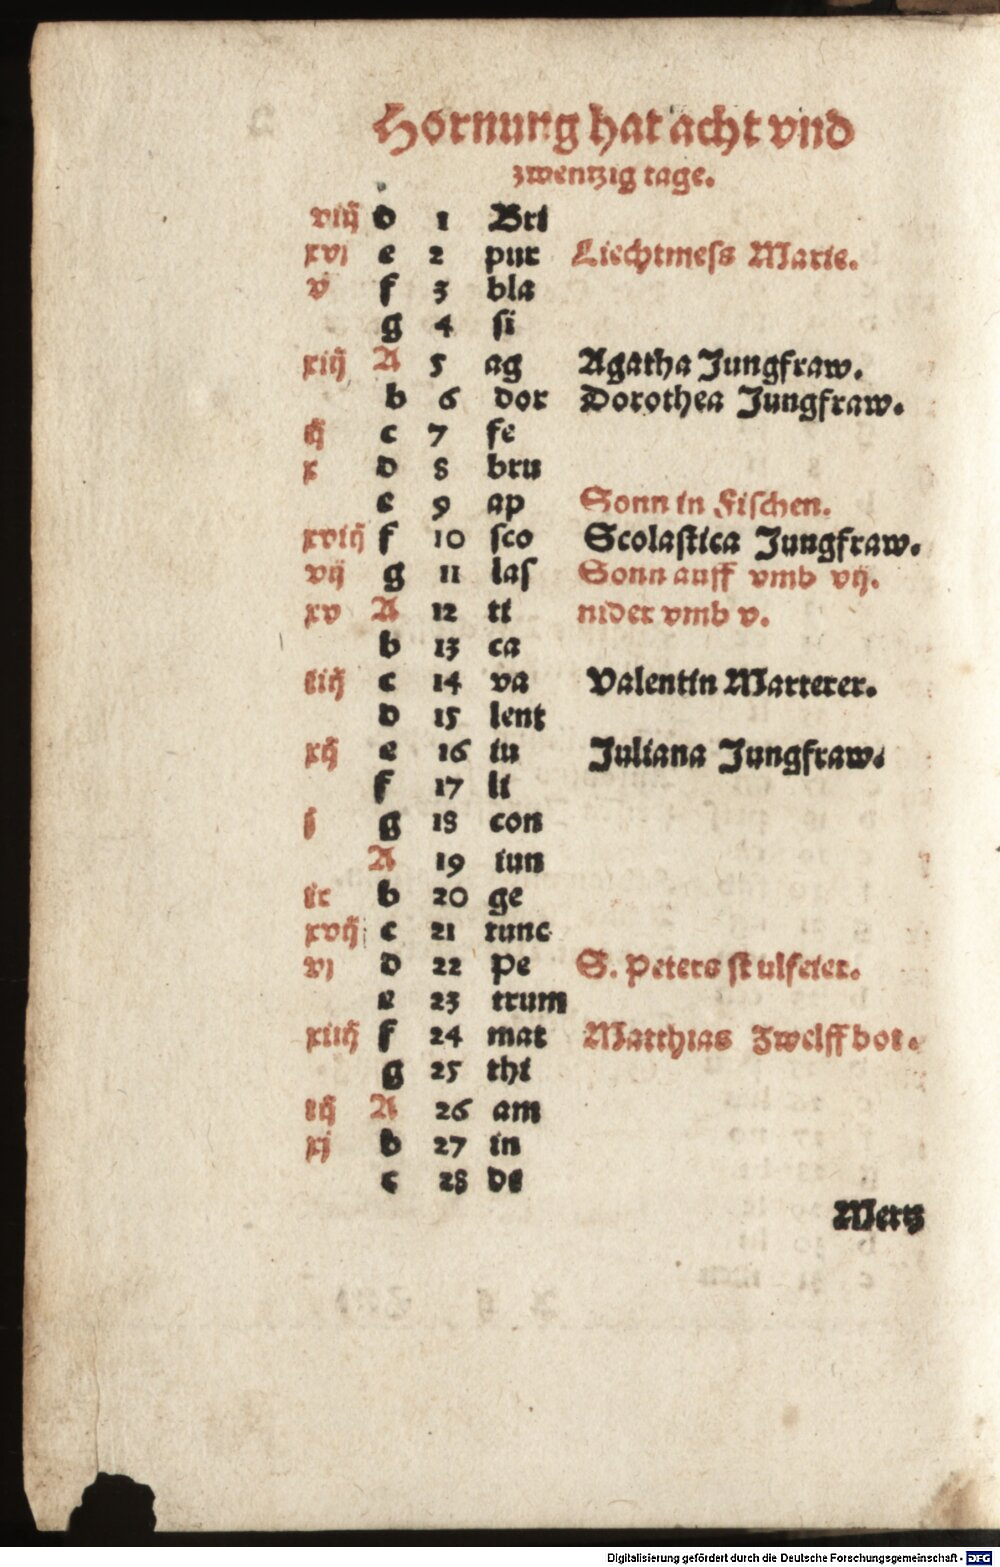 Hornung hat acht vnd
zwentzig tage.
viij d 1 Bri
xvj e 2 pur Liechtmess Marie.
v f 3 bla
g 4 si
xiij A 5 ag Agatha Jungfraw.
b 6 dor Dorothea Jungfraw.
ij c 7 fe
x d 8 bru
e 9 ap Sonn in Fischen.
xviij f 10 sco Scolastica Jungfraw.
vij g 11 las Sonn auff vmb vij.
xv A 12 ti nider vmb v.
b 13 ca
iiij c 14 va Valentin Marterer.
d 15 lent
xij e 16 iu Juliana Jungfraw.
f 17 li
j g 18 con
A 19 iun
ix b 20 ge
xvij c 21 tunc
vj d 22 Pe S. Peters stulfeier.
e 23 trum
xiiij f 24 mat Matthias Zwelffbot.
g 25 thi
iij A 26 am
xj b 27 in
c 28 de
Mertz
Digitalisierung gefördert durch die Deutsche Forschungsgemeinschaft - DFG